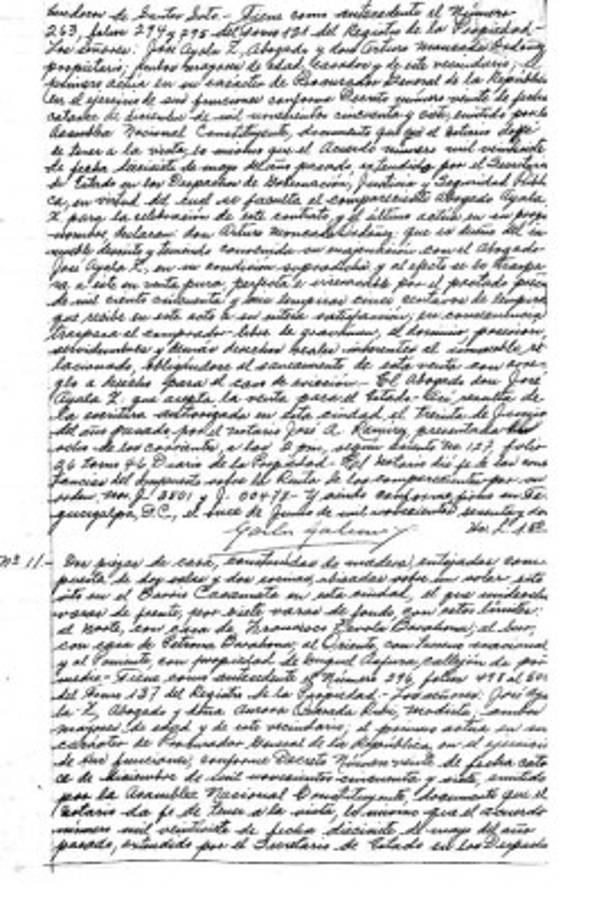 heredera de Santos Soto.- Tiene como antecedente el Número
263, folios 294 y 295 del tomo 131 del Registro de la Propiedad.-
Los señores: José Ayala Z, Abogado y don Arturo Moncada
propietario; ambos mayores de edad, casados y de este vecindario; el
primero actúa en su carácter de Procurador General de la República
en el ejercicio de sus funciones conforme Decreto número veinte de fecha
catorce de diciembre de mil novecientos cincuenta y siete, emitido por la
Asamblea Nacional Constituyente, documento que el notario
de tener a la vista, lo mismo que el Acuerdo número mil veintisiete
de fecha diecisiete de mayo del año pasado extendido por el Secretario
de Estado en los Despachos de Gobernación, Justicia y Seguridad Públi-
ca, en virtud del cual se faculta al compareciente Abogado Ayala
Z. para la celebración de este contrato, y el último actúa en su propio
nombre, declaran: don Arturo Moncada que es dueño del in-
mueble descrito y teniendo convenida su enajenación con el Abogado
José Ayala Z., en su condición supradicha y al efecto se lo traspa-
sa a este en venta pura, perfecta e irrevocable por el pactado precio
de mil ciento cincuenta y lempiras cinco centavos de lempira
que recibe en este acto a su entera satisfacción; en consecuencia
traspasa al comprador libre de gravamen, el dominio, posesión
servidumbres y demás derechos reales inherentes al inmueble re-
lacionado, obligándose al saneamiento de esta venta con arre-
glo a derecho para el caso de evicción.- El Abogado don José
Ayala Z. que acepta la venta para el Estado.- Así resulta de
la escritura autorizada en esta ciudad el treinta de Junio
del año pasado, por el notario José A. Ramírez, presentada
ocho de los corrientes, a las 2 pm, según asiento No 127, folio
96 tomo 46 Diario de la Propiedad.- El Notario dió fe de las cons-
tancias del Impuesto sobre la Renta de los comparecientes por su
orden, nos. J. 3501 y J. 00478.- Y siendo conforme firmo en Te-
gucigalpa, D.C., el once de Junio de mil novecientos sesenta y dos
No 11.- Dos piezas de casa, construidas de madera, entejadas com-
puesta de dos salas y dos cocinas, ubicadas sobre un solar sito
en el Barrio Casamata en esta ciudad, el que mide
varas de frente, por siete varas de fondo con estos límites:
al Norte, con casa de Francisco Barahona; al Sur,
con casa de Petrona Barahona; al Oriente, con terreno nacional
y al Poniente, con propiedad de callejón de por
medio.- Tiene como antecedente el Número 296, folios 498 al 500
del tomo 137 del Registro de la Propiedad.- Los señores: José Aya-
la Z, Abogado y doña Aurora Quezada modista, ambos
mayores de edad y de este vecindario, el primero actúa en su
carácter de Procurador General de la República, en el ejercicio
de sus funciones, conforme Decreto Número veinte de fecha cator-
ce de diciembre de mil novecientos cincuenta y siete, emitido
por la Asamblea Nacional Constituyente, documento que el
notario da fe de tener a la vista, lo mismo que el acuerdo
número mil veintisiete de fecha diecisiete de mayo del año
pasado, extendido por el Secretario de Estado en los Despachos